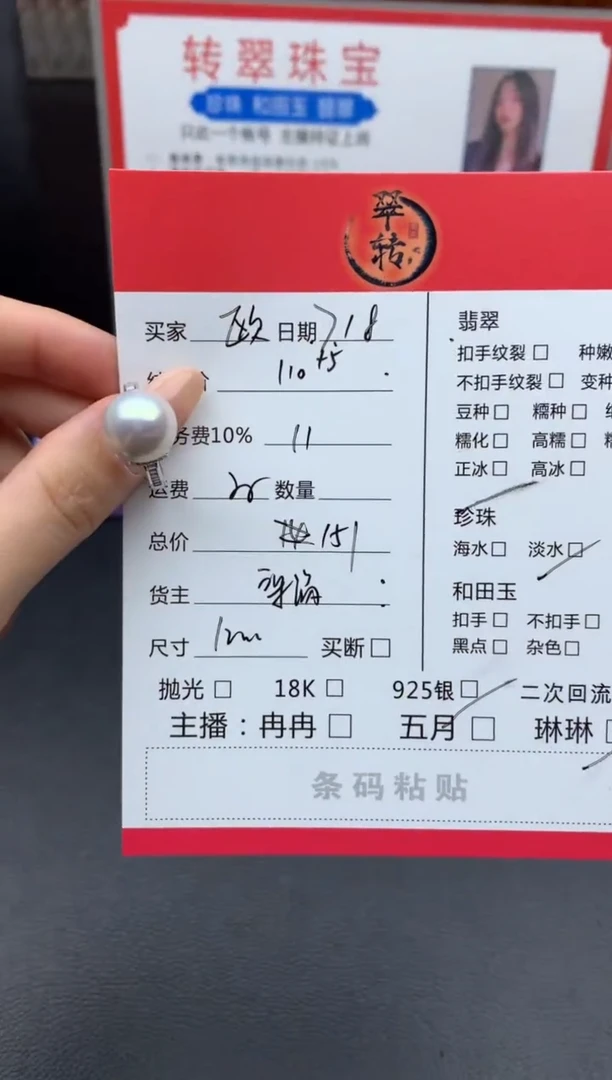 转翠珠宝
珍珠 和田玉 翡翠
只此一个账号 主播持证上岗
翠
转
买家 欧 日期 7.18
价 110 +5
务费10% 11
运费 数量
总价 151
货主
尺寸 买断
翡翠
扣手纹裂 种嫩
不扣手纹裂 变种
豆种 糯种
糯化 高糯
正冰 高冰
珍珠
海水 淡水
和田玉
扣手 不扣手
黑点 杂色
抛光 18K 925银 二次回流
主播：冉冉 五月 琳琳
条码粘贴